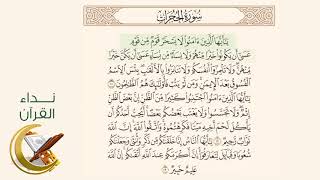 سُورَةُ الحُجُرَات
يَٰٓأَيُّهَا ٱلَّذِينَ ءَامَنُوا۟ لَا يَسْخَرْ قَوْمٌ مِّن قَوْمٍ
عَسَىٰٓ أَن يَكُونُوا۟ خَيْرًا مِّنْهُمْ وَلَا نِسَآءٌ مِّن نِّسَآءٍ عَسَىٰٓ أَن يَكُنَّ خَيْرًا
مِّنْهُنَّ وَلَا تَلْمِزُوٓا۟ أَنفُسَكُمْ وَلَا تَنَابَزُوا۟ بِٱلْأَلْقَٰبِ بِئْسَ ٱلِٱسْمُ
ٱلْفُسُوقُ بَعْدَ ٱلْإِيمَٰنِ وَمَن لَّمْ يَتُبْ فَأُو۟لَٰٓئِكَ هُمُ ٱلظَّٰلِمُونَ ١١
يَٰٓأَيُّهَا ٱلَّذِينَ ءَامَنُوا۟ ٱجْتَنِبُوا۟ كَثِيرًا مِّنَ ٱلظَّنِّ إِنَّ بَعْضَ ٱلظَّنِّ
إِثْمٌ وَلَا تَجَسَّسُوا۟ وَلَا يَغْتَب بَّعْضُكُم بَعْضًا أَيُحِبُّ أَحَدُكُمْ أَن
يَأْكُلَ لَحْمَ أَخِيهِ مَيْتًا فَكَرِهْتُمُوهُ وَٱتَّقُوا۟ ٱللَّهَ إِنَّ ٱللَّهَ
تَوَّابٌ رَّحِيمٌ ١٢ يَٰٓأَيُّهَا ٱلنَّاسُ إِنَّا خَلَقْنَٰكُم مِّن ذَكَرٍ وَأُنثَىٰ وَجَعَلْنَٰكُمْ
شُعُوبًا وَقَبَآئِلَ لِتَعَارَفُوٓا۟ إِنَّ أَكْرَمَكُمْ عِندَ ٱللَّهِ أَتْقَىٰكُمْ إِنَّ ٱللَّهَ
عَلِيمٌ خَبِيرٌ ١٣
نداء
القرآن